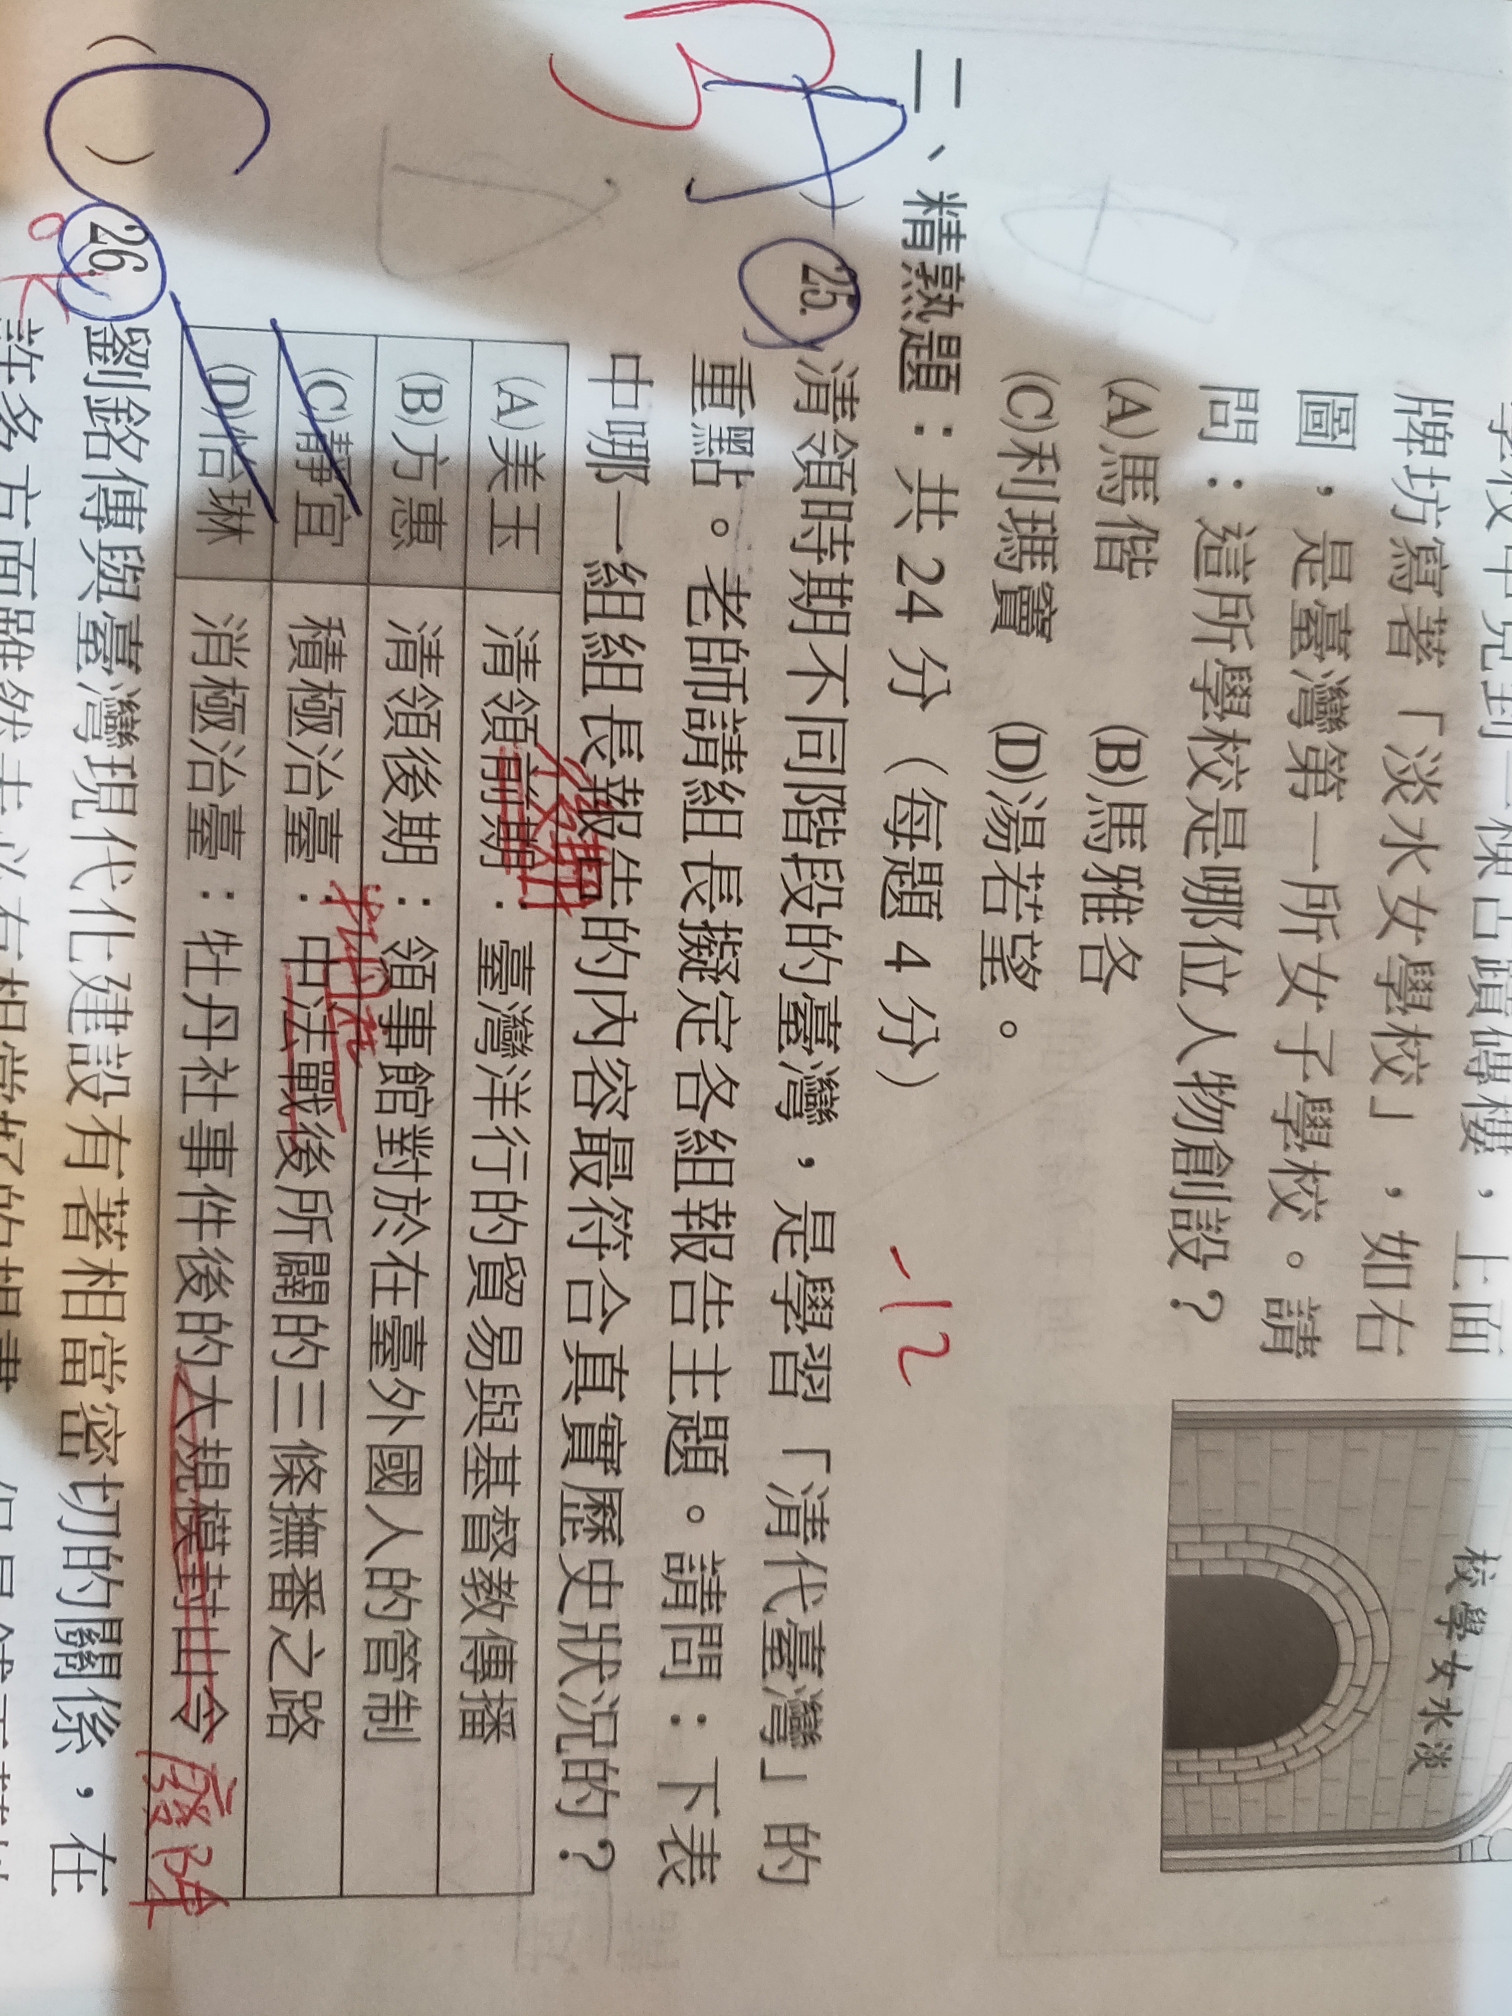 牌坊寫著「淡水女學校」，如右
圖，是臺灣第一所女子學校。請
問：這所學校是哪位人物創設？
(A)馬偕 (B)馬雅各
(C)利瑪竇 (D)湯若望。
校學女水淡
二、精熟題：共 24 分（每題 4 分） -12
B A
25. 清領時期不同階段的臺灣，是學習「清代臺灣」的
重點。老師請組長擬定各組報告主題。請問：下表
中哪一組組長報告的內容最符合真實歷史狀況的？
後期
(A)美玉 清領前期：臺灣洋行的貿易與基督教傳播
(B)方惠 清領後期：領事館對於在臺外國人的管制
牡丹社
(C)靜宜 積極治臺：中法戰後所闢的三條撫番之路
(D)怡琳 消極治臺：牡丹社事件後的大規模封山令 廢除
( C ) 26. 劉銘傳與臺灣現代化建設有著相當密切的關係，在
OK